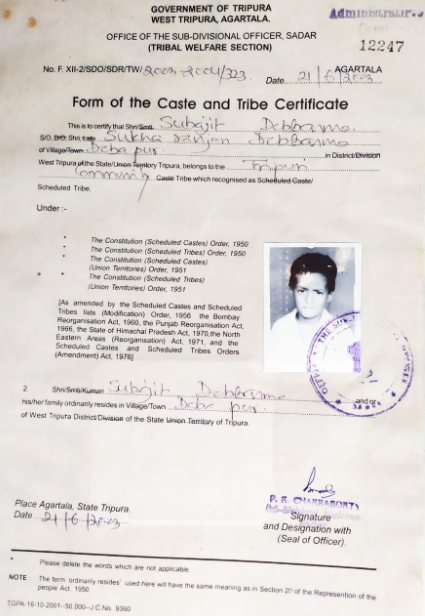 GOVERNMENT OF TRIPURA
WEST TRIPURA, AGARTALA.
Administrator
OFFICE OF THE SUB-DIVISIONAL OFFICER, SADAR
(TRIBAL WELFARE SECTION)
12247
No. F. XII-2/SDO/SDR/TW/2003-2004/323
AGARTALA
Date 21/6/2003
Form of the Caste and Tribe Certificate
This is to certify that Shri/Smti. Subajit Debbarma
S/O, D/O, Shri, Sukha ranjan Debbarma
of Village/Town Debapur in District/Division
West Tripura of the State/Union Territory Tripura, belongs to the Tripuri
Community Caste Tribe which recognised as Scheduled Caste/
Scheduled Tribe.
Under :-
* The Constitution (Scheduled Castes) Order, 1950
* The Constitution (Scheduled Tribes) Order, 1950
* The Constitution (Scheduled Castes)
(Union Territories) Order, 1951
* The Constitution (Scheduled Tribes)
(Union Territories) Order, 1951
[As amended by the Scheduled Castes and Scheduled
Tribes lists (Modification) Order, 1956 the Bombay
Reorganisation Act, 1960, the Punjab Reorganisation Act,
1966, the State of Himachal Pradesh Act, 1970, the North
Eastern Areas (Reorganisation) Act, 1971, and the
Scheduled Castes and Scheduled Tribes Orders
(Amendment) Act, 1976]
2 Shri/Smti/Kumari Subajit Debbarma and or
his/her family ordinarily resides in Village/Town Deba pur.
of West Tripura District/Division of the State Union Territory of Tripura.
P. R. CHAKRABORTY
Place Agartala, State Tripura.
Date 21/6/2003
Signature
and Designation with
(Seal of Officer).
* Please delete the words which are not applicable.
NOTE The term ordinarily resides' used here will have the same meaning as in Section 20 of the Represention of the
people Act, 1950.
TGPA-16-10-2001-50,000-J.C No. 9360